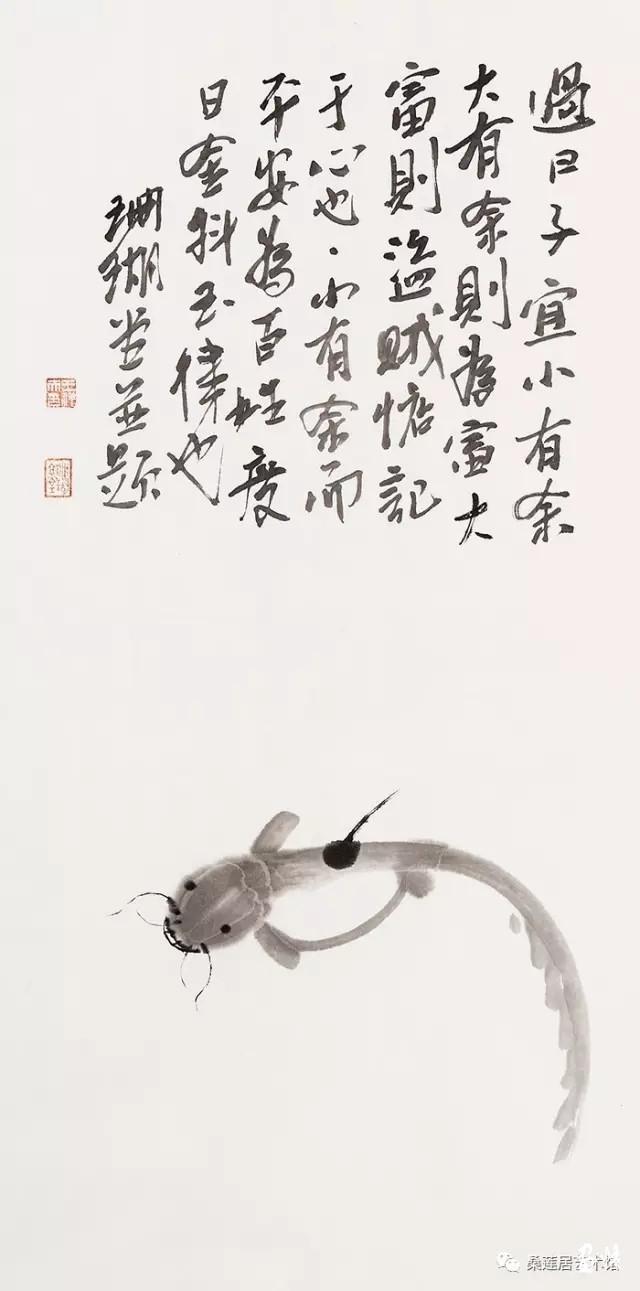 過日子宜小有余
大有余則為富大
富則盜賊惦記
于心也·小有余而
平安為百姓度
日金科玉律也
珊瑚堂并題
桑莲居艺术馆